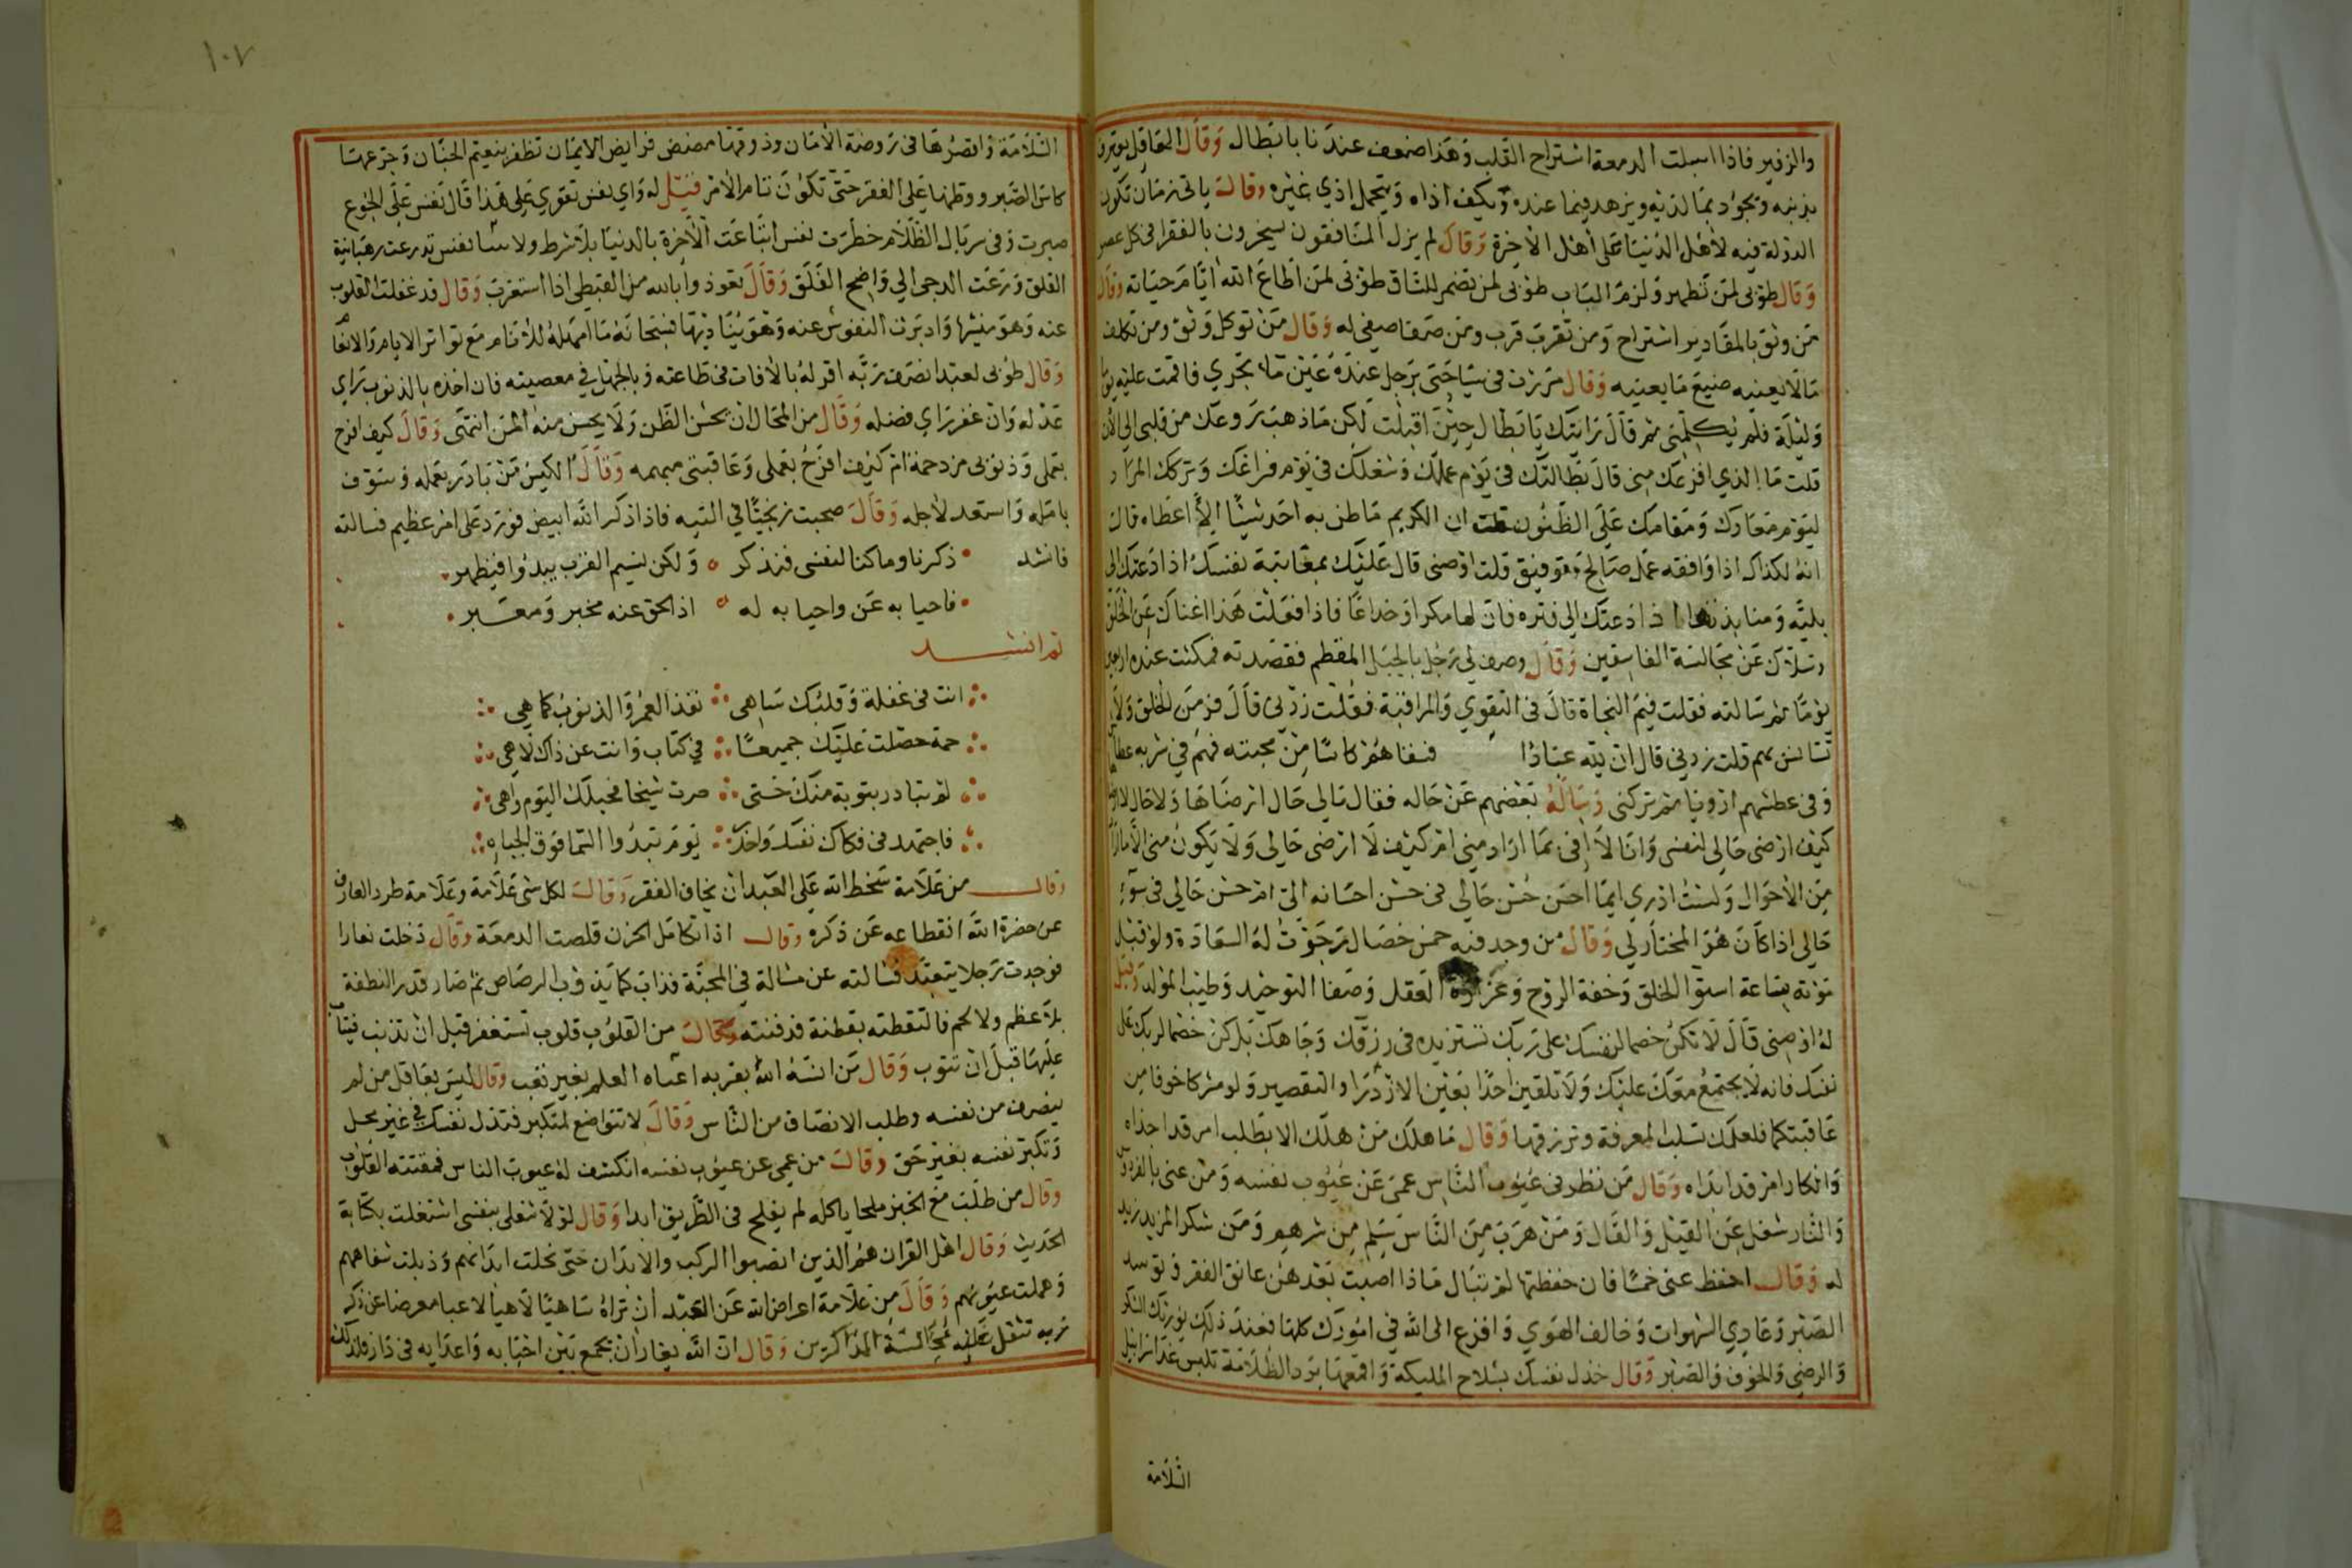 والزفير فاذا اسبلت الدمعة استراح القلب وهذا ضعف عندنا يا بطال وقال العاقل يعترف
بذنبه ويجود بما لديه ويزهد فيما عنده ويكف اذاه ويتحمل اذي غيره وقال ياتي زمان تكون
الدولة فيه لاهل الدنيا على اهل الاخرة وقال لم يزل المنافقون يسخرون بالفقرا في كل عصر
وقال طوبى لمن تطهر ولزم الباب طوبى لمن تضمر للسباق طوبى لمن اطاع الله ايام حياته وقال
من وثق بالمقادير استراح ومن تقرب قرب ومن صفا صفي له وقال من توكل وثق ومن تكلف
ما لا يعنيه ضيع ما يعنيه وقال مررت في سياحتى برجل عنده عين ما تجري فاقمت عليه يوما
وليلة فلم يكلمني ثم قال رايتك يا بطال حين اقبلت لكن ما ذهب روعك من قلبي الى الان
قلت ما الذي افزعك مني قال بطالتك في يوم عملك وشغلك في يوم فراغك وتركك المزاد
ليوم معادك ومقامك على الظنون قلت ان الكريم ما ظن به احد شيئا الا اعطاه قال
انه لكذاك اذا وافقه عمل صالح وتوفيق قلت اوصني قال عليك بمعاتبة نفسك اذا دعتك الى
بلية ومنابذتها اذا دعتك الى فتره فان لها مكرا وخداعا فاذا فعلت هذا اغناك عن الخلق
وسلاك عن مجالسة الفاسقين وقال وصف لي رجل بالجبل المقطم فقصدته فمكثت عنده اربعين
يوما ثم سالته فقلت فيم النجاة قال في التقوي والمراقبة فقلت زدني قال فر من الخلق ولا
تستانس بهم قلت زدني قال ان لله عبادا سقاهم كاسا من محبته فهم في شربه عطاش
وفي عطشهم ارويا ثم تركني وساله بعضهم عن حاله فقال مالي حال ارضاها ولا حال لا ارضاها
كيف ارضى حالي لنفسي وانا لا افي بما اراد مني ام كيف لا ارضى حالي ولا يكون مني الا ما اراد
من الاحوال ولست ادري ايما احسن حسن حالي في حسن احسانه الي ام حسن حالي في سوء
حالي اذا كان هو المختار لي وقال من وجد فيه خمس خصال رجوت له السعادة ولو قبل
موته بساعة استوا الخلق وخفة الروح وغزارة العقل وصفا التوحيد وطيب المولد وقيل
له اوصني قال لا تكن خصما لنفسك على ربك تستزيده في رزقك وجاهك بل كن خصما لربك على
نفسك فانه لا يجتمع معك عليك ولا تلقين احدا بعين الازدرا والتقصير ولو مشركا خوفا من
عاقبتكما فلعلك تسلب المعرفة ويرزقها وقال ما هلك من هلك الا بطلب امر قد اخفاه
وانكار امر قد ابداه وقال من نظر في عيوب الناس عمي عن عيوب نفسه ومن عنى بالفردوس
والنار شغل عن القيل والقال ومن هرب من الناس سلم من شرهم ومن شكر المزيد زيد
له وقال احفظ عني خمسا فان حفظتها لم تبال ماذا اصبت بعدهن عانق الفقر وتوسد
الصبر وعادي الشهوات وخالف الهوي وافزع الى الله في امورك كلها فعند ذلك يورثك الشكر
والرضي والخوف والصبر وقال خذل نفسك بسلاح المليكة واقمعها برد الظلامة تلبس غدا سرابيل
السلامة
١٠٧
السلامة واقصرها في روضة الامان وذوقها مضض فرايض الايمان تظفر بنعيم الجنان وجرعها
كاس الصبر ووطنها على الفقر حتى تكون تام الامر فقيل له واي نفس تقوي على هذا قال نفس على الجوع
صبرت وفي سربال الظلام خطرت نفس ابتاعت الاخرة بالدنيا بلا شرط ولا ثنيا نفس تدرعت رهبانية
القلق ورعت الدجى الي واضح الفلق وقال تعوذوا بالله من القبطي اذا استعرب وقال قد غفلت القلوب
عنه وهو منشيها وادبرت النفوس عنه وهو يناديها فسبحانه ما امهله للانام مع تواتر الايام والانعام
وقال طوبى لعبد انصف ربه اقر له بالافات في طاعته وبالجهل في معصيته فان اخذه بالذنوب راي
عدله وان غفر راي فضله وقال من المحال ان يحسن الظن ولا يحسن منه المن انتهى وقال كيف افرح
بعملي وذنوبي مزدحمة ام كيف افرح بعملي وعاقبتي مبهمه وقال الكيس من بادر بعمله وسوف
بامله واستعد لاجله وقال صحبت زنجيا في التيه فاذا ذكر الله ابيض فورد على امر عظيم فسالته
فانشد ذكرنا وما كنا لننسى فنذكر ولكن نسيم القرب يبدوا فيظهر
فاحيا به عني واحيا به له اذ الحق عنه مخبر ومعبر
ثم انشد
انت في غفلة وقلبك ساهي نفذ العمر والذنوب كما هي
جمة حصلت عليك جميعا في كتاب وانت عن ذاك لاهي
لم تبادر بتوبة منك حتى صرت شيخا فحبلك اليوم واهي
فاجتهد في فكاك نفسك واحذر يوم تبدوا السما فوق الجباه
وقال من علامة سخط الله على العبد ان يخاف الفقر وقال لكل شي علامة وعلامة طرد العارف
عن حضرة الله انقطاعه عن ذكره وقال اذا تكامل الحزن قلصت الدمعة وقال دخلت غارا
فوجدت رجلا يتعبد فسالته عن مسالة في المحبة فذاب كما يذوب الرصاص ثم صار قدر النطفة
بلا عظم ولا لحم فالتقطته بقطنة فدفنته وقال من القلوب قلوب تستغفر قبل ان تذنب فيتاب
عليها قبل ان تتوب وقال من انسه الله بقربه اعطاه العلم بغير تعب وقال ليس بعاقل من لم
ينصف من نفسه وطلب الانصاف من الناس وقال لا تتواضع لمتكبر فتذل نفسك في غير محل
وتكبر نفسه بغير حق وقال من عمي عن عيوب نفسه انكشف له عيوب الناس فمقتته القلوب
وقال من طلب مع الخبز ملحا ياكله لم يفلح في الطريق ابدا وقال لولا شغلي بنفسي اشتغلت بكتابة
الحديث وقال اهل القران هم الذين انصبوا الركب والابدان حتى نحلت ابدانهم وذبلت شفاههم
وهملت عيونهم وقال من علامة اعراض الله عن العبد ان تراه ساهيا لاهيا لاعبا معرضا عن ذكر
ربه تثقل عليه مجالسة الذاكرين وقال ان الله يغار ان يجمع بين احبابه واعدايه في دار